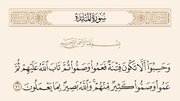 سورة المائدة
بسم الله الرحمن الرحيم
وَحَسِبُوٓا۟ أَلَّا تَكُونَ فِتْنَةٌ فَعَمُوا۟ وَصَمُّوا۟ ثُمَّ تَابَ ٱللَّهُ عَلَيْهِمْ ثُمَّ
عَمُوا۟ وَصَمُّوا۟ كَثِيرٌ مِّنْهُمْ ۚ وَٱللَّهُ بَصِيرٌۢ بِمَا يَعْمَلُونَ ٧١